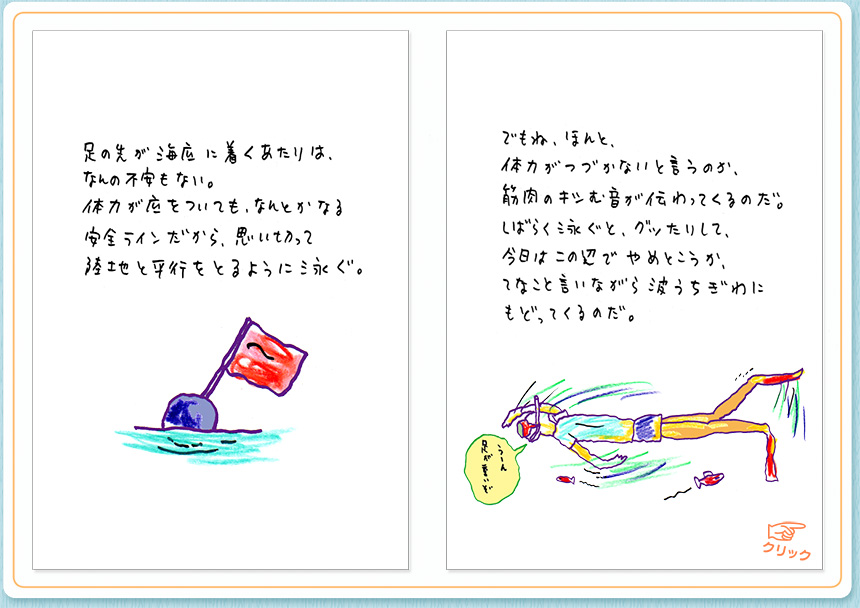 足の先が海底に着くあたりは、
なんの不安もない。
体力が底をついても、なんとかなる
安全ラインだから、思い切って
陸地と平行をとるように泳ぐ。
でもね、ほんと、
体力がつづかないと言うのか、
筋肉のキシむ音が伝わってくるのだ。
しばらく泳ぐと、グッたりして、
今日はこの辺でやめとこうか、
てなこと言いながら波うちぎわに
もどってくるのだ。
うーん
足が重いぞ
クリック